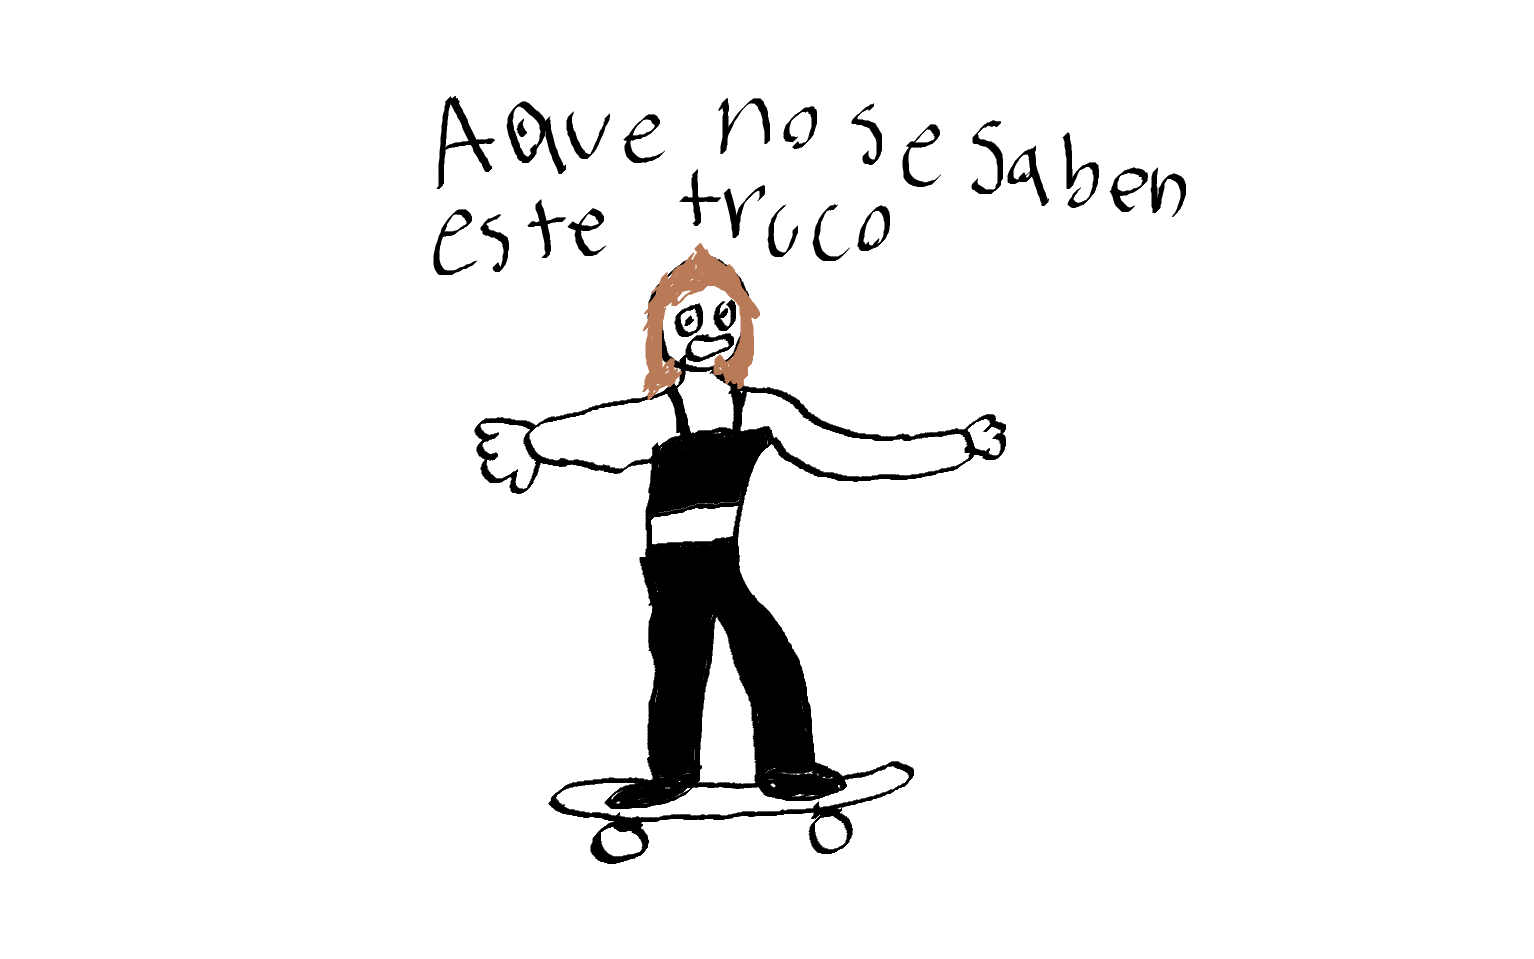 Aque no se saben
este truco